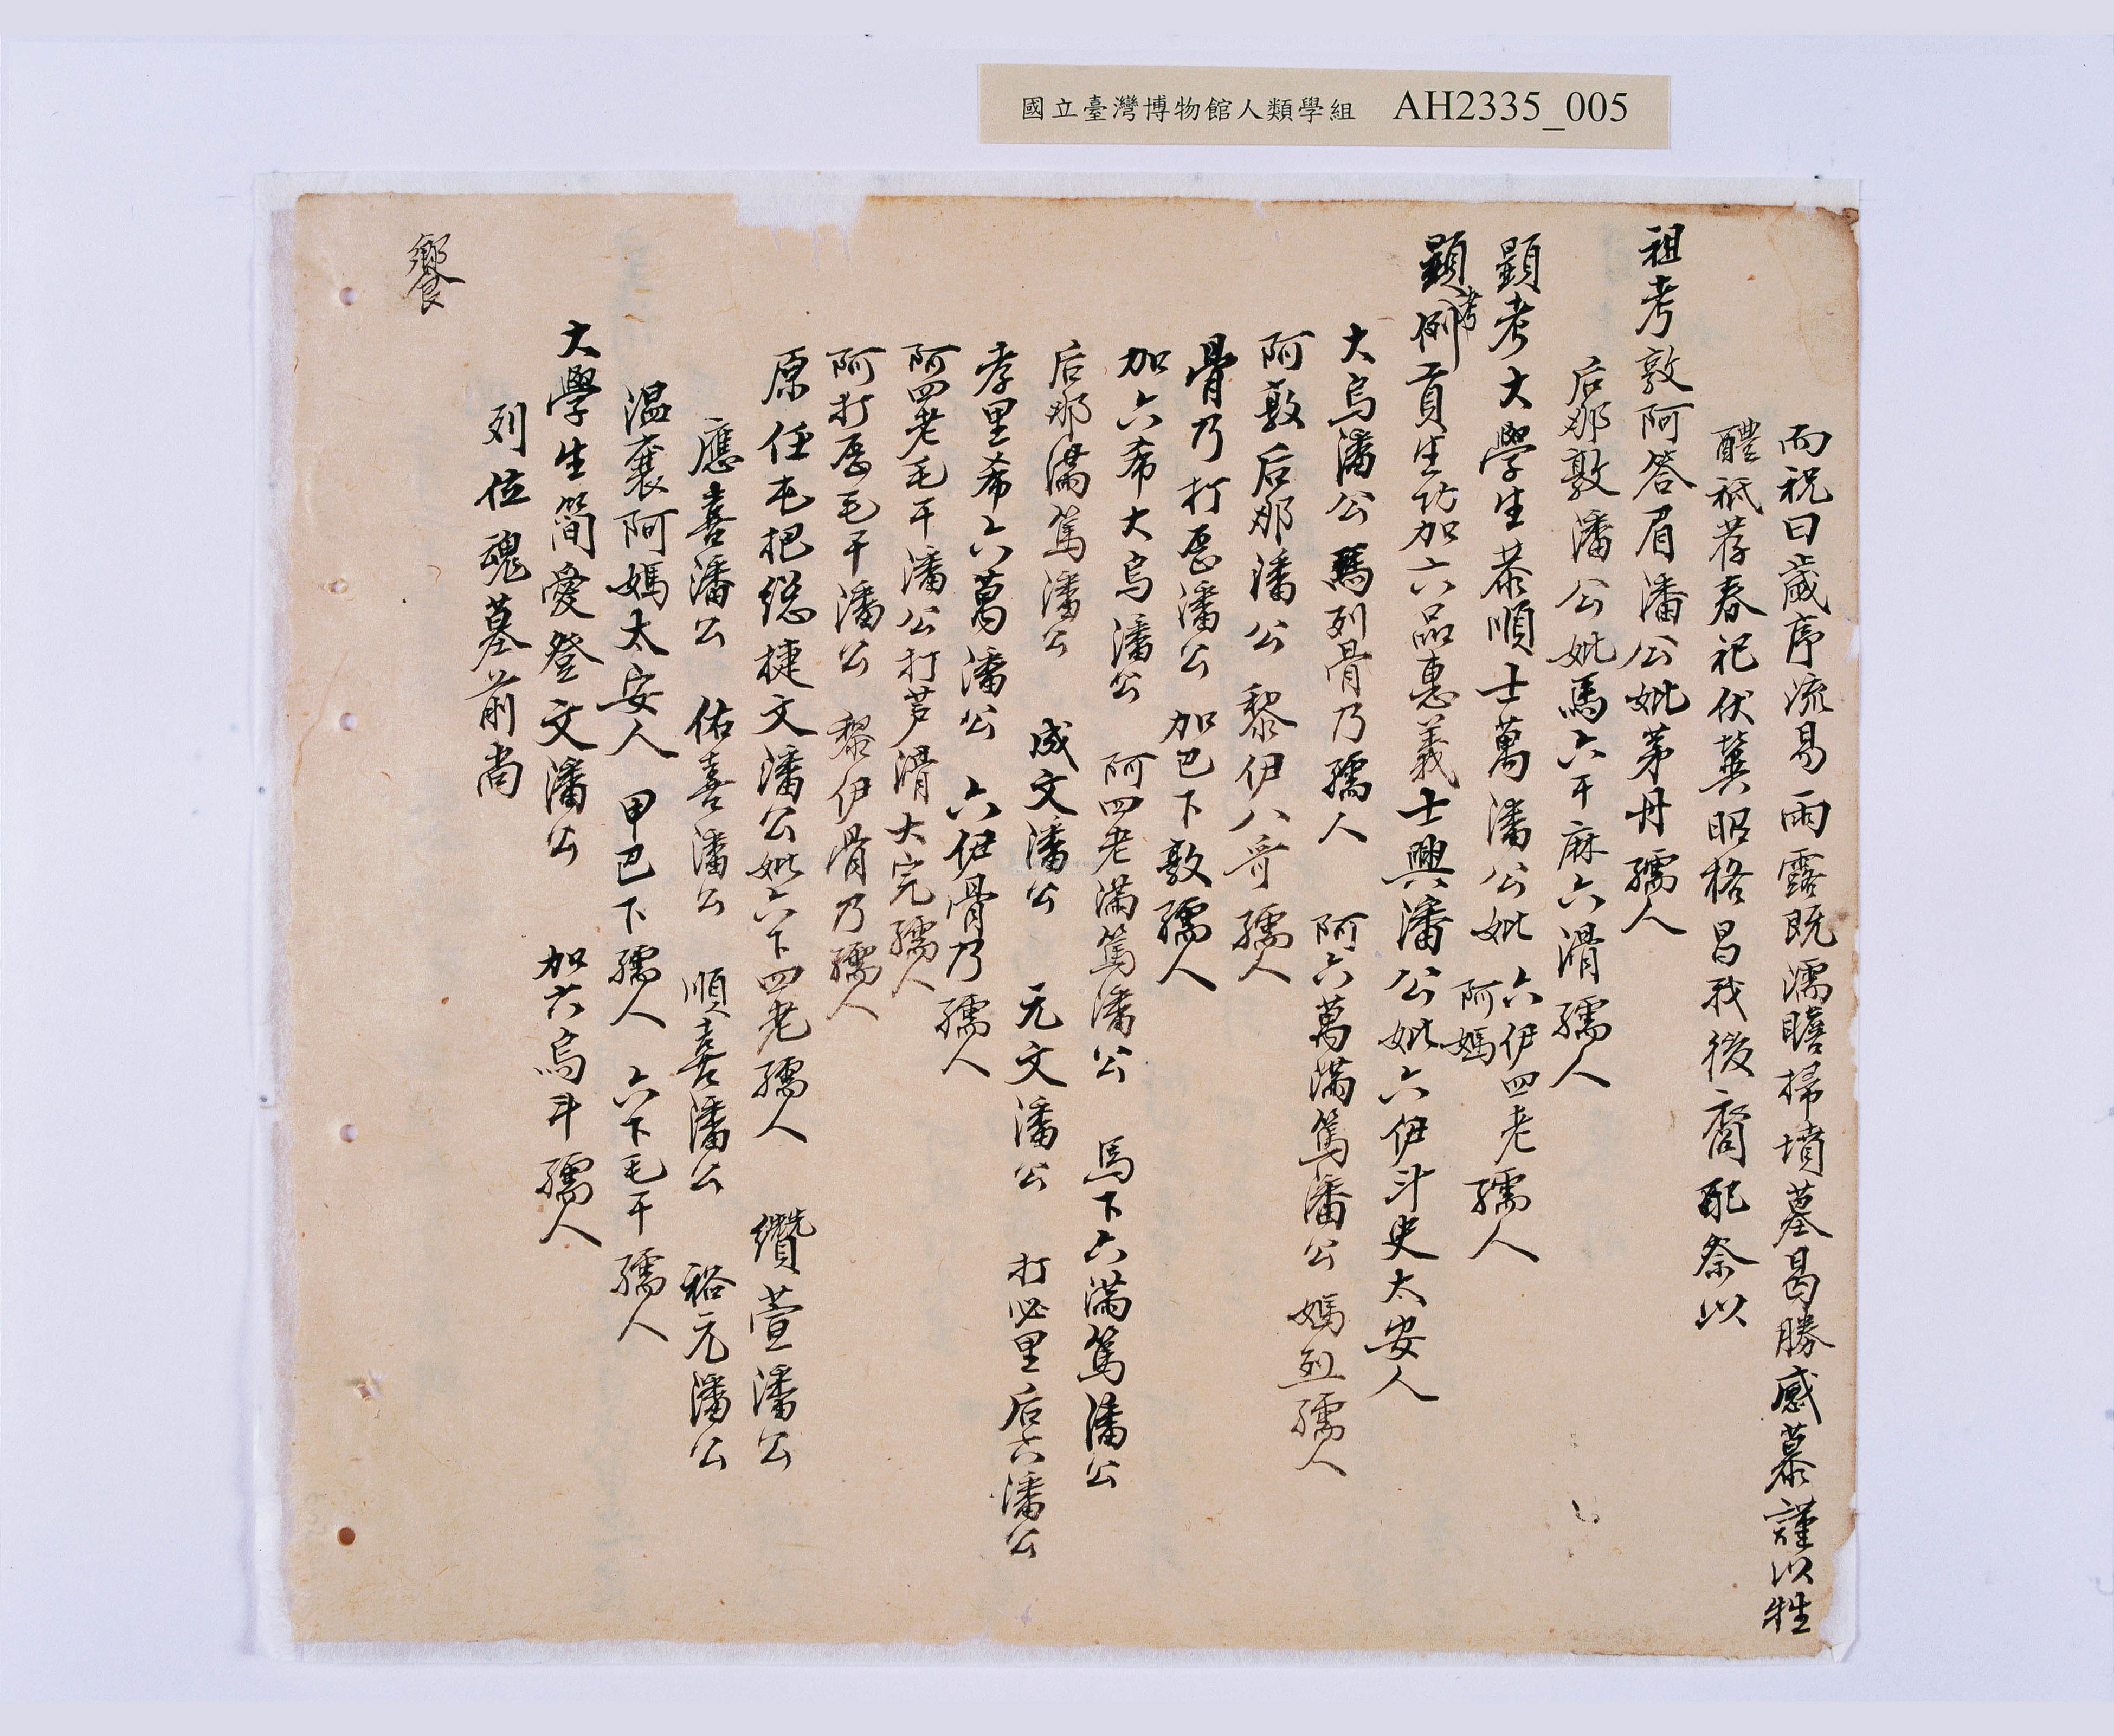 國立臺灣博物館人類學組 AH2335_005
而祝曰歲序流易雨露既濡瞻掃墳墓曷勝感慕謹以牲
醴祗荐春祀伏冀昭格昌我後裔配祭以
祖考敦阿答眉潘公妣茅丹孺人
后那敦潘公妣馬六干麻六滑孺人
顕考大學生恭順士萬潘公妣六伊四老阿媽孺人
顕考例貢生訪加六品惠義士興潘公妣六伊斗史太安人
大烏潘公馬列骨乃孺人 阿六萬滿篤潘公 媽列孺人
阿敦后那潘公 黎伊八哥孺人
骨乃打歷潘公 加巴下敦孺人
加六希大烏潘公 阿四老滿篤潘公 馬下六滿篤潘公
后那滿篤潘公 成文潘公 元文潘公 打必里后六潘公
孝里希六萬潘公 六伊骨乃孺人
阿四老毛干潘公打芦滑大完孺人
阿打歷毛干潘公 黎伊骨乃孺人
原任屯把総捷文潘公妣六下四老孺人 纘萱潘公
應喜潘公 佑喜潘公 順喜潘公 裕元潘公
温襄阿媽太安人 甲巴下孺人 六下毛干孺人
大學生簡愛登文潘公 加六烏斗孺人
列位魂墓前尚
饗